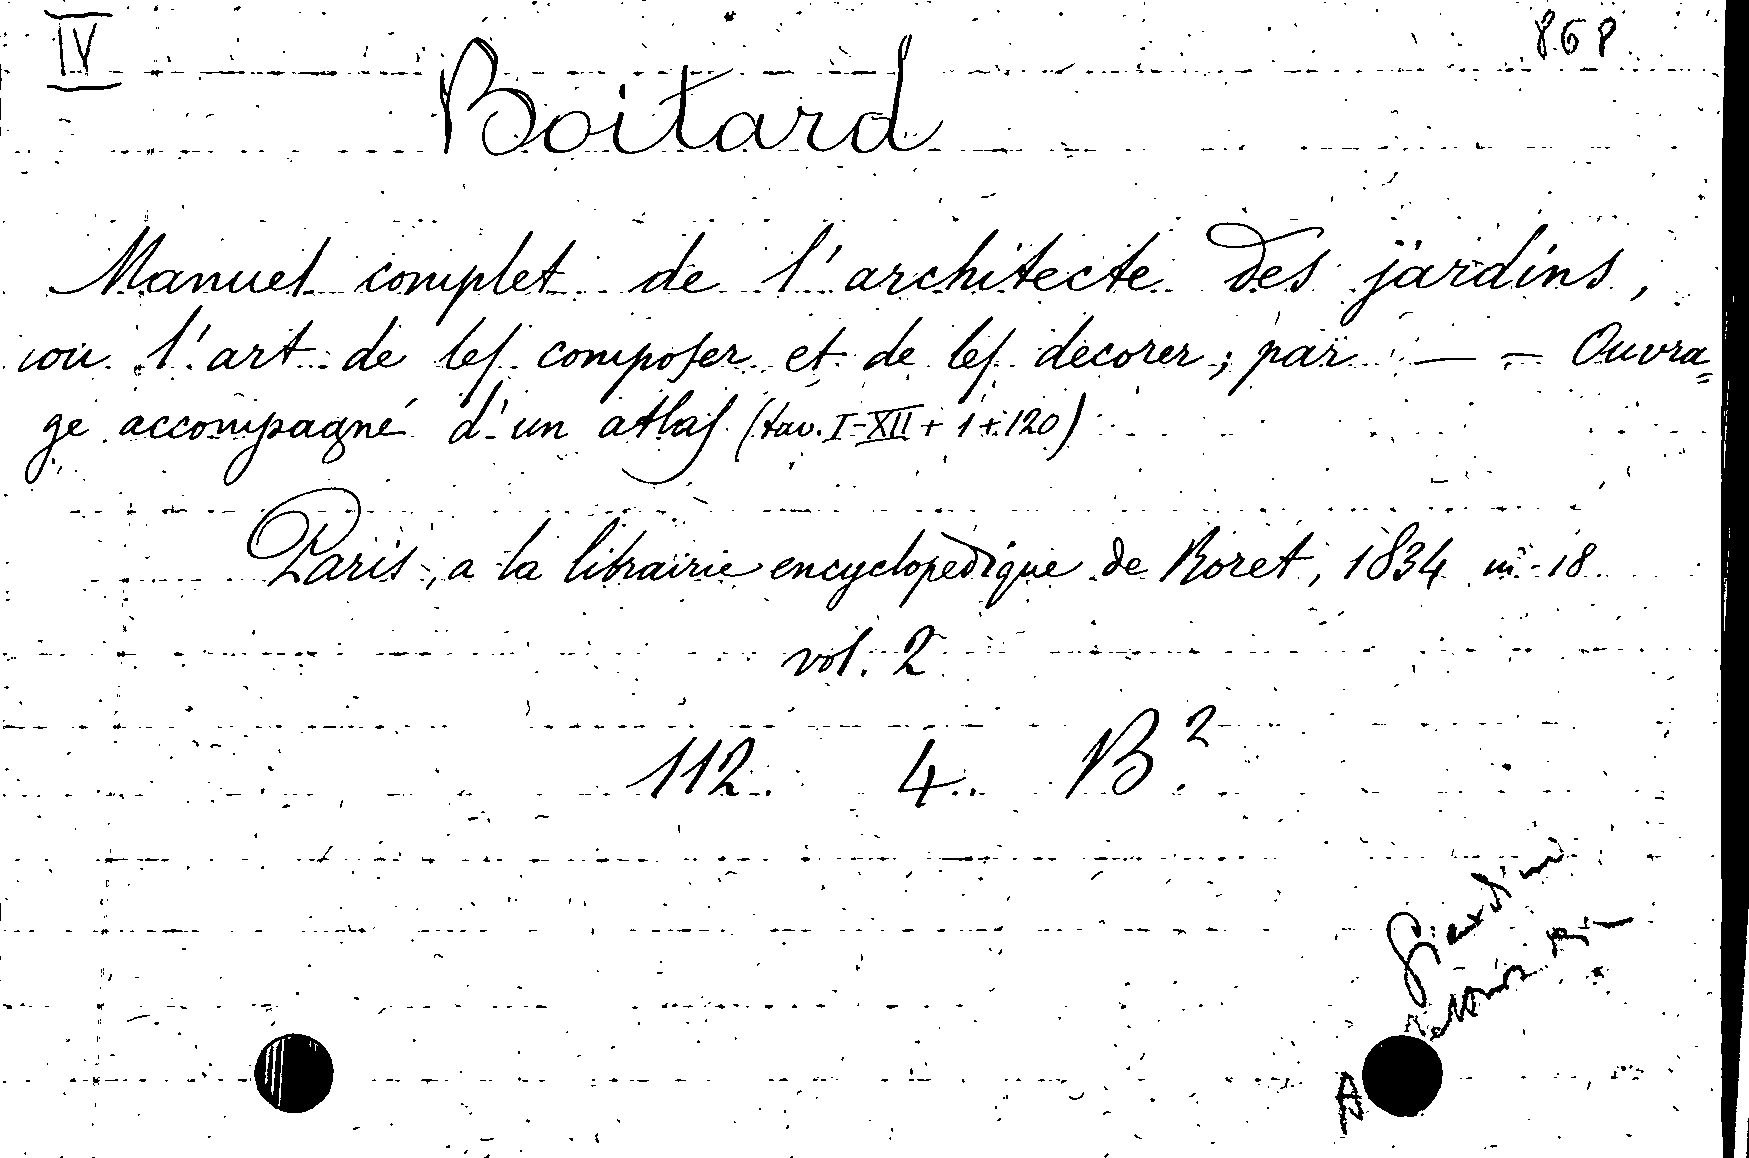 IV
868
Boitard
Manuel complet de l'architecte des jardins,
ou l'art de les composer et de les decorer; par — — Ouvra=
ge accompagné d'un atlas (tav. I-XII + 1 + 120)
Paris, a la librairie encyclopedique de Roret, 1834 in-18
vol. 2
112. 4. B².
Giardini
A